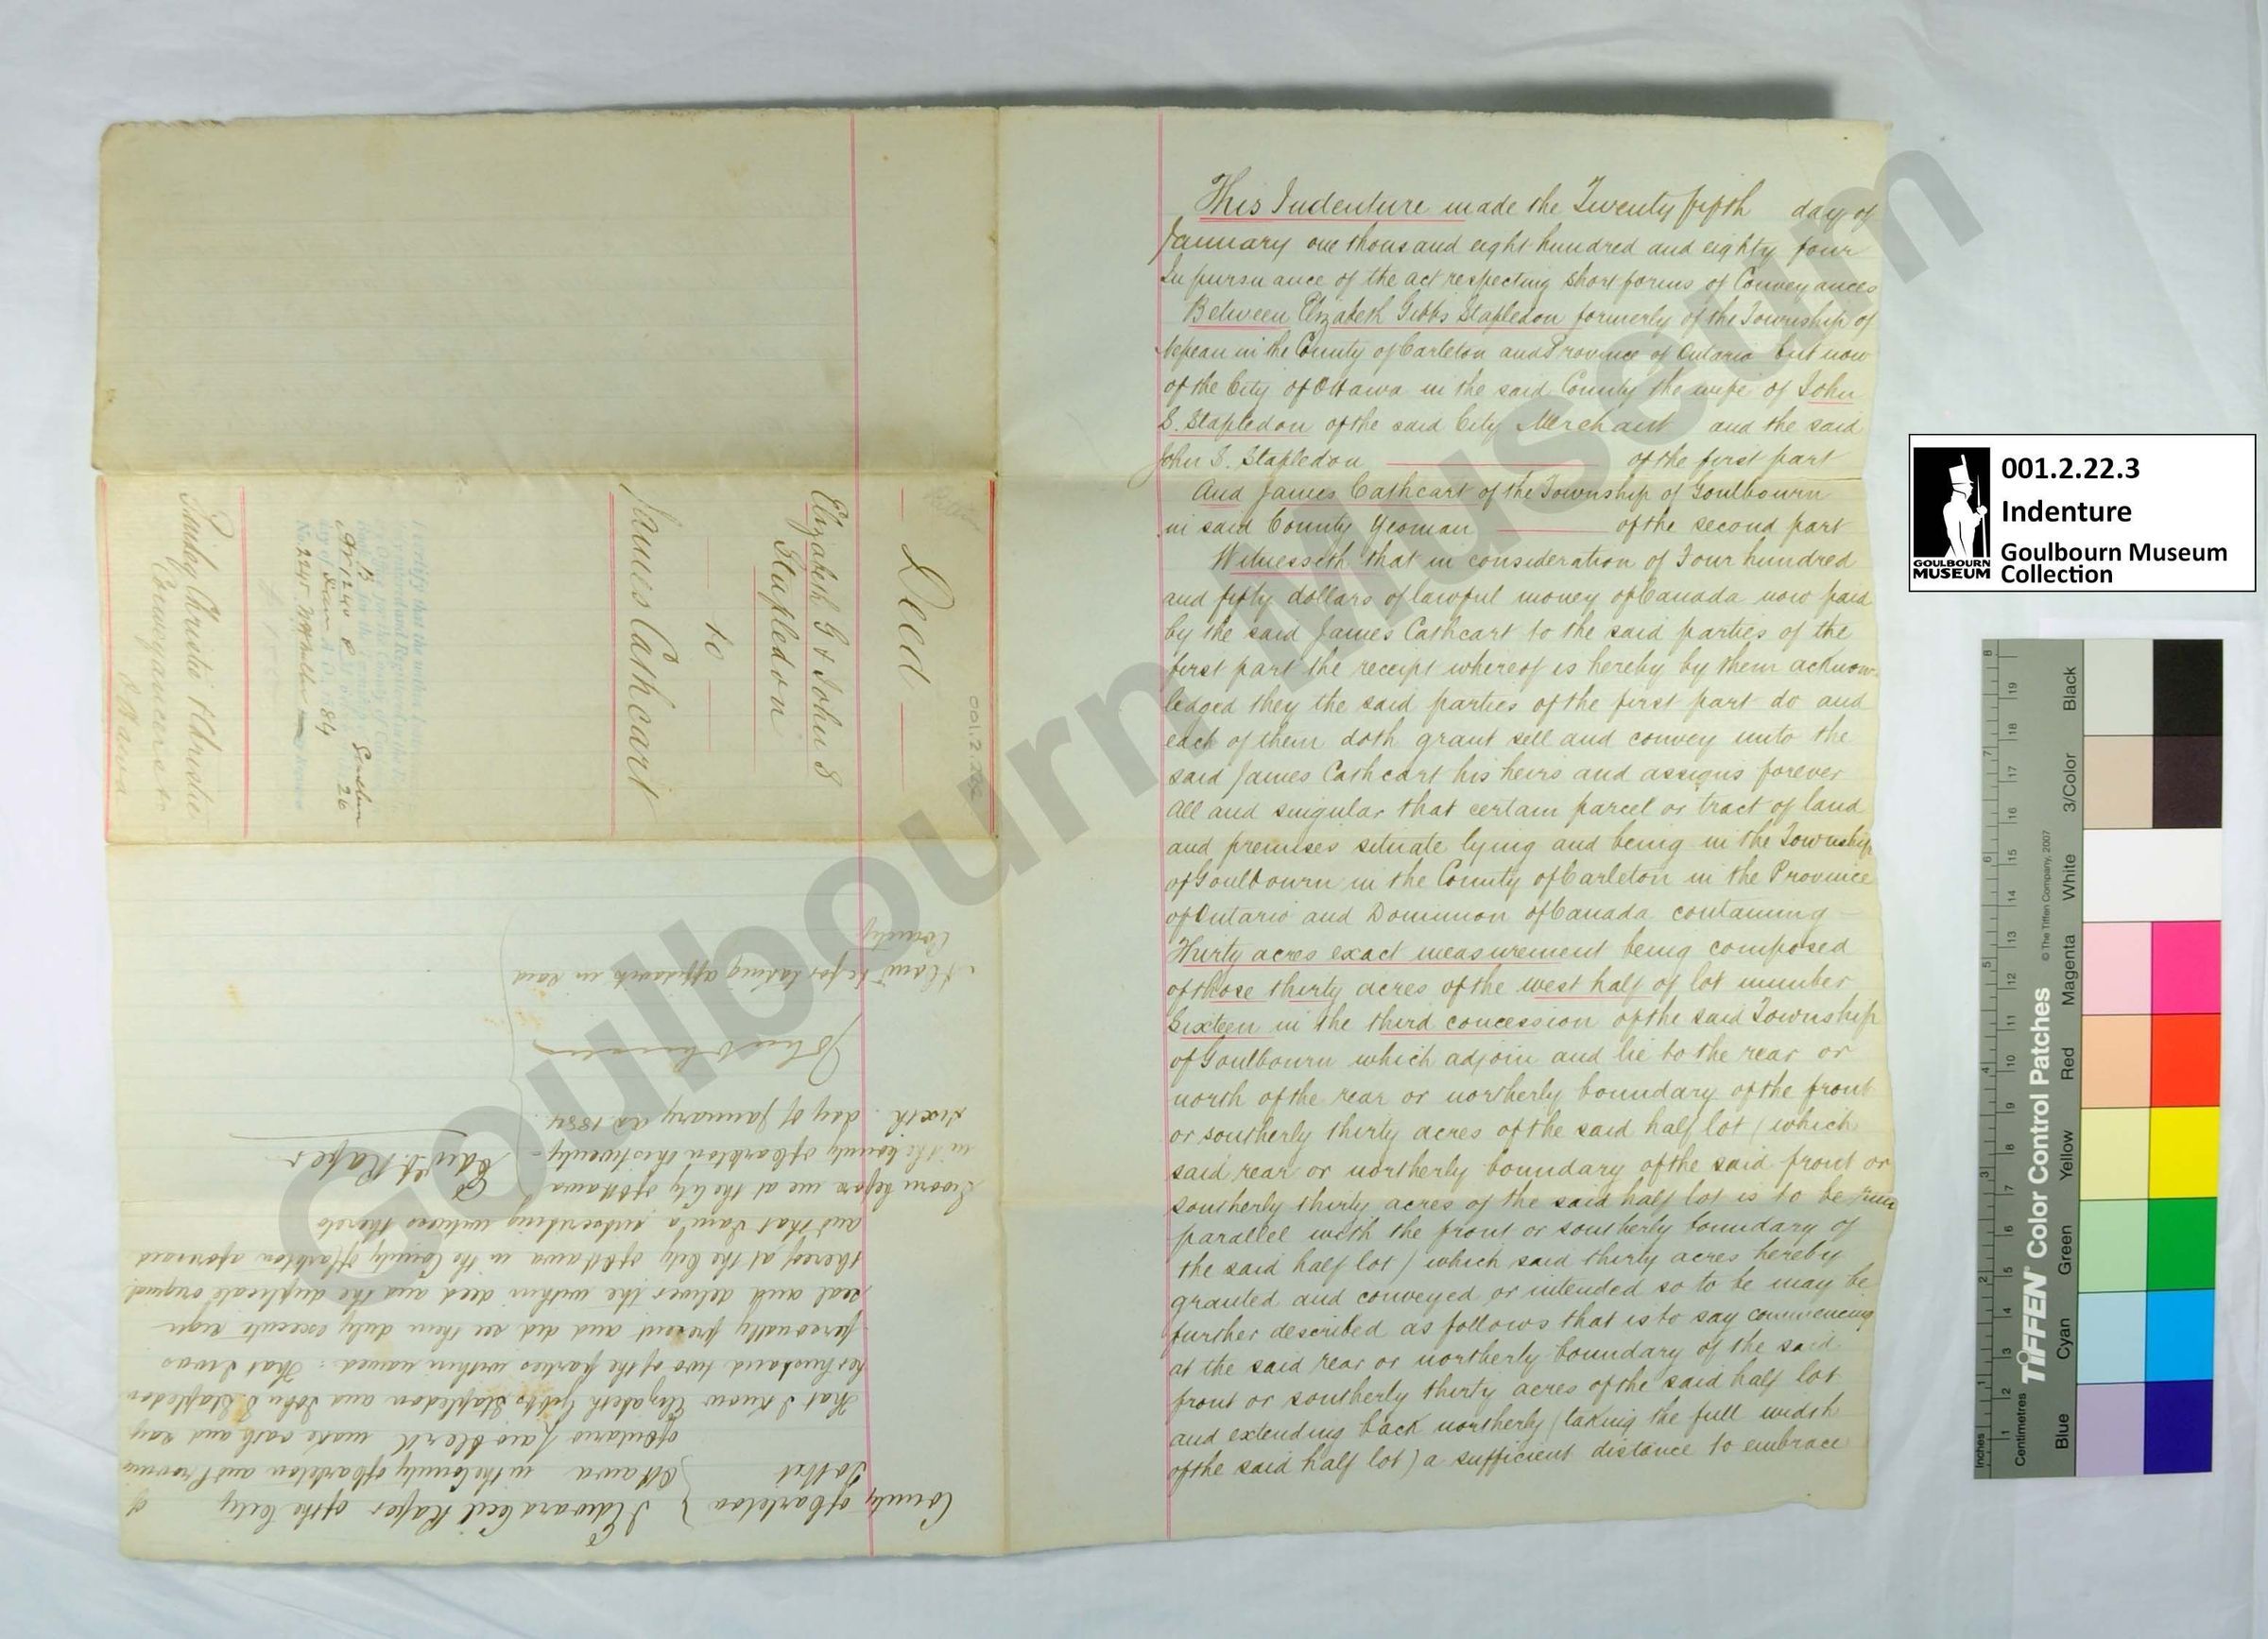 This Indenture made the Twenty fifth day of
January one thousand eight hundred and eighty four
In pursuance of the act respecting Short forms of Conveyances
Between Elizabeth Gibbs Stapledon formerly of the Township of
Nepean in the County of Carleton and Province of Ontario but now
of the City of Ottawa in the said County the wife of John
S. Stapledon of the said City Merchant and the said
John S. Stapledon of the first part
And James Cathcart of the Township of Goulbourn
in said County Yeoman of the second part
Witnesseth that in consideration of Four hundred
and fifty dollars of lawful money of Canada now paid
by the said James Cathcart to the said parties of the
first part the receipt whereof is hereby by them acknow-
ledged they the said parties of the first part do and
each of them doth grant sell and convey unto the
said James Cathcart his heirs and assigns forever
All and singular that certain parcel or tract of land
and premises situate lying and being in the Township
of Goulbourn in the County of Carleton in the Province
of Ontario and Dominion of Canada containing
Thirty acres exact measurement being composed
of those thirty acres of the west half of lot number
Sixteen in the third concession of the said Township
of Goulbourn which adjoin and lie to the rear or
north of the rear or northerly boundary of the front
or southerly thirty acres of the said half lot (which
said rear or northerly boundary of the said front or
southerly thirty acres of the said half lot is to be run
parallel with the front or southerly boundary of
the said half lot) which said thirty acres hereby
granted and conveyed or intended so to be may be
further described as follows that is to say commencing
at the said rear or northerly boundary of the said
front or southerly thirty acres of the said half lot
and extending back northerly (taking the full width
of the said half lot) a sufficient distance to embrace
Deed
001.2.22
Elizabeth G & John S
Stapledon
to
James Cathcart
I certify that the within
B
Goulburn
26
84
No. 2245
Christie & Christie
Conveyancers &c
Ottawa
County of Carleton } I Edward Cecil Raper of the City of
To Wit } Ottawa in the County of Carleton and Province
of Ontario Law Clerk make oath and say
That I know Elizabeth Gibbs Stapledon and John S Stapledon
her husband two of the parties within named: That I was
personally present and did see them duly execute sign
seal and deliver the within deed and the duplicate original
thereof at the City of Ottawa in the County of Carleton aforesaid
and that I am a subscribing witness thereto
Sworn before me at the City of Ottawa
in the County of Carleton this twenty-
sixth day of January AD 1884
Edw. C. Raper
A Com'r &c for taking affidavits in said
County
Goulbourn Museum
001.2.22.3
Indenture
Goulbourn Museum
Collection
GOULBOURN
MUSEUM
TIFFEN® Color Control Patches
© The Tiffen Company, 2007
Inches
Centimetres
Blue
Cyan
Green
Yellow
Red
Magenta
White
3/Color
Black